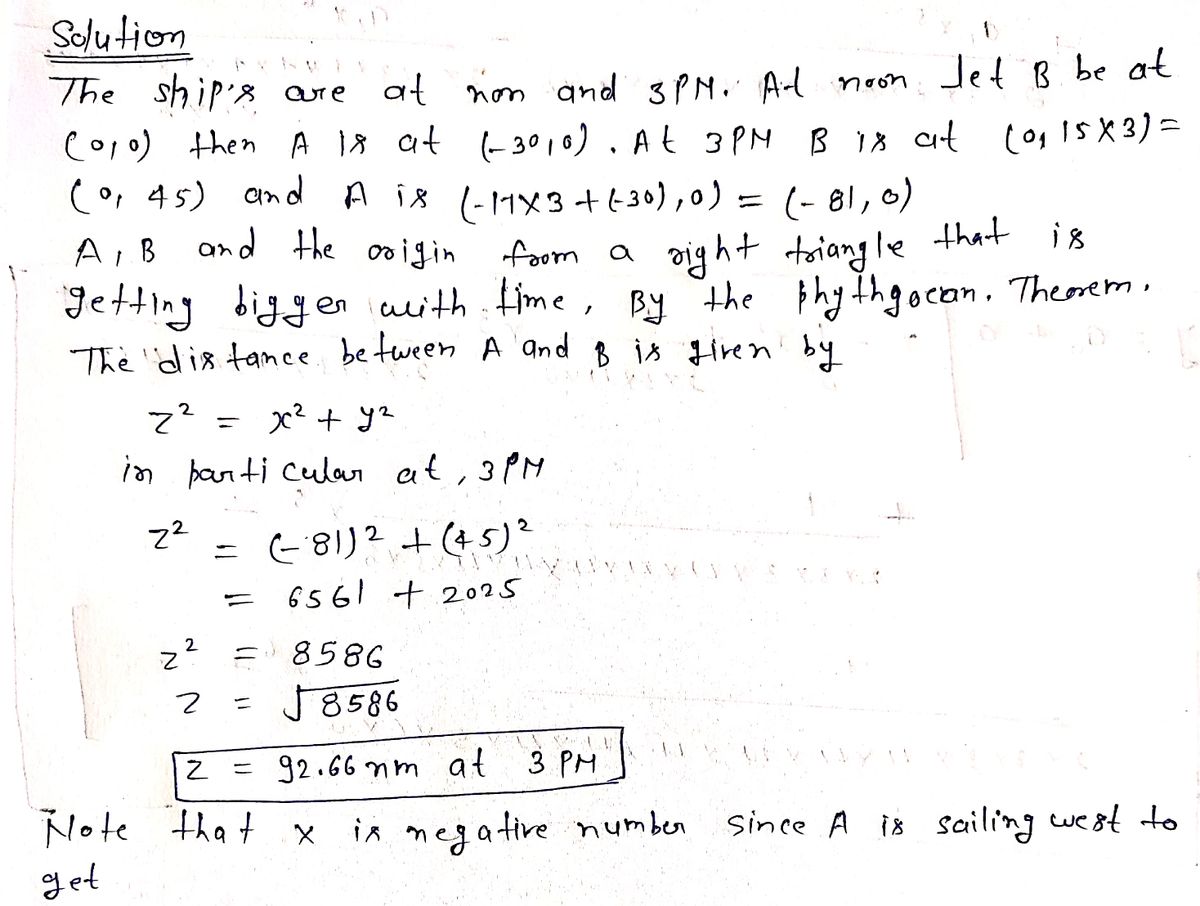 Solution
The ship's are at non and 3PM. At noon let B be at
(0,0) then A is at (-30,0). At 3PM B is at (0, 15×3) =
(0, 45) and A is (-17×3+(-30),0) = (-81, 0)
A, B and the origin from a right triangle that is
getting bigger with time, By the phythgocan. Theorem.
The distance between A and B is given by
z² = x² + y²
in particular at, 3PM
z² = (-81)² + (45)²
= 6561 + 2025
z² = 8586
z = √8586
z = 92.66 nm at 3 PM
Note that x is negative number since A is sailing west to
get